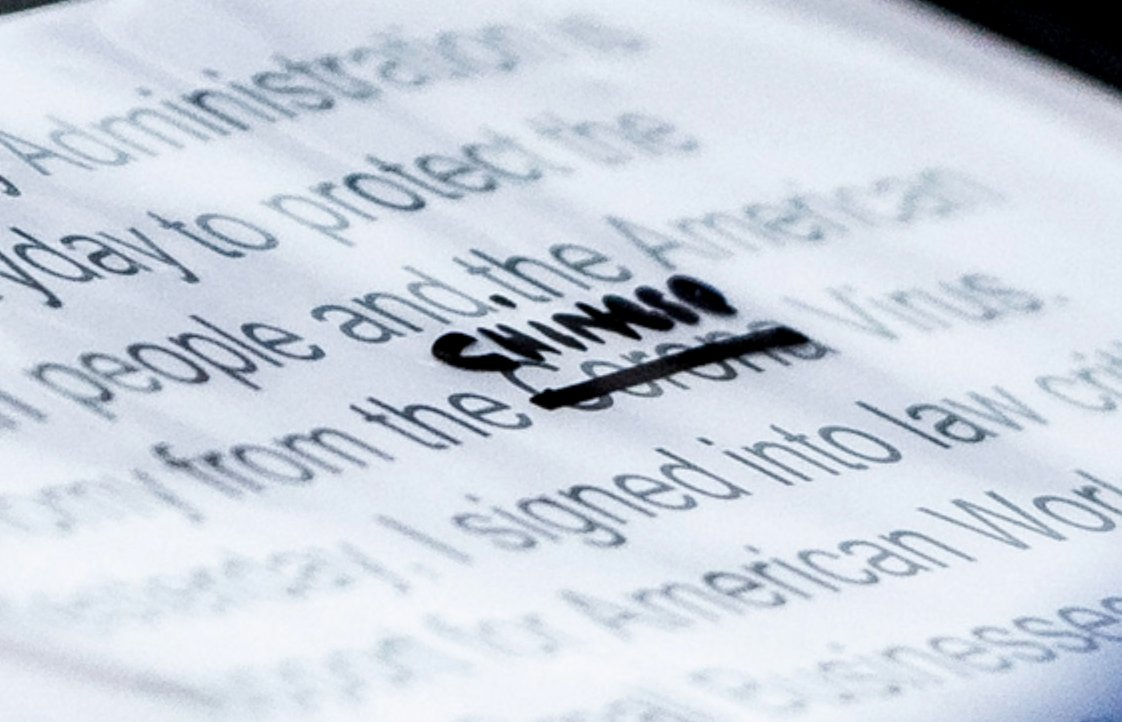 Administration is
yday to protect the
people and the American
CHINESE
from the Corona Virus.
I signed into law
for American Wor
Businesses